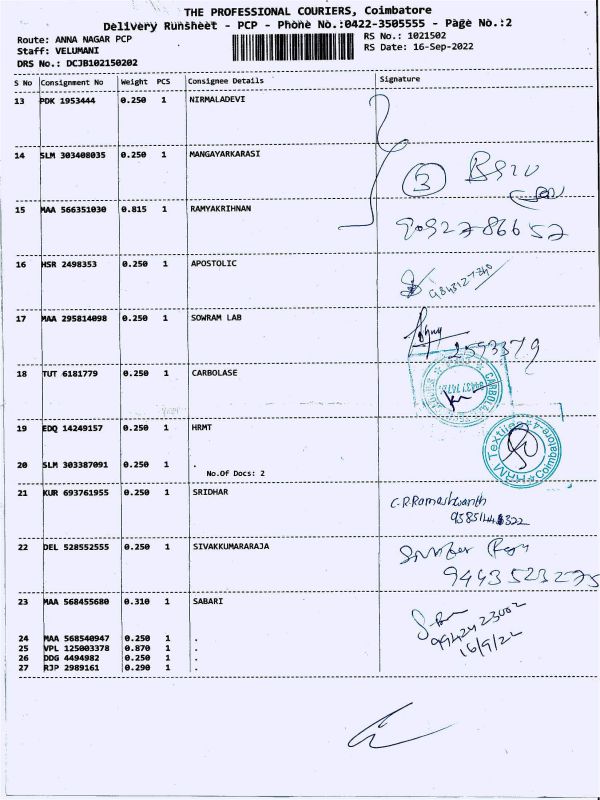 THE PROFESSIONAL COURIERS, Coimbatore
Delivery Runsheet - PCP - Phone No.:0422-3505555 - Page No.:2
Route: ANNA NAGAR PCP
RS No.: 1021502
Staff: VELUMANI
RS Date: 16-Sep-2022
DRS No.: DCJB102150202
S No Consignment No Weight PCS Consignee Details Signature
13 PDK 1953444 0.250 1 NIRMALADEVI
14 SLM 303408035 0.250 1 MANGAYARKARASI
3
15 MAA 566351030 0.815 1 RAMYAKRIHNAN
9092786652
16 HSR 2498353 0.250 1 APOSTOLIC
17 MAA 295814098 0.250 1 SOWRAM LAB
2593379
18 TUT 6181779 0.250 1 CARBOLASE
19 EDQ 14249157 0.250 1 HRMT
HRM Textiles Coimbatore-4
20 SLM 303387091 0.250 1 .
No.Of Docs: 2
21 KUR 693761955 0.250 1 SRIDHAR
C.R.Rameshwanth
22 DEL 528552555 0.250 1 SIVAKKUMARARAJA
9443523275
23 MAA 568455680 0.310 1 SABARI
9942423002
16/9/22
24 MAA 568540947 0.250 1 .
25 VPL 125003378 0.870 1 .
26 DDG 4494982 0.250 1 .
27 RJP 2989161 0.290 1 .